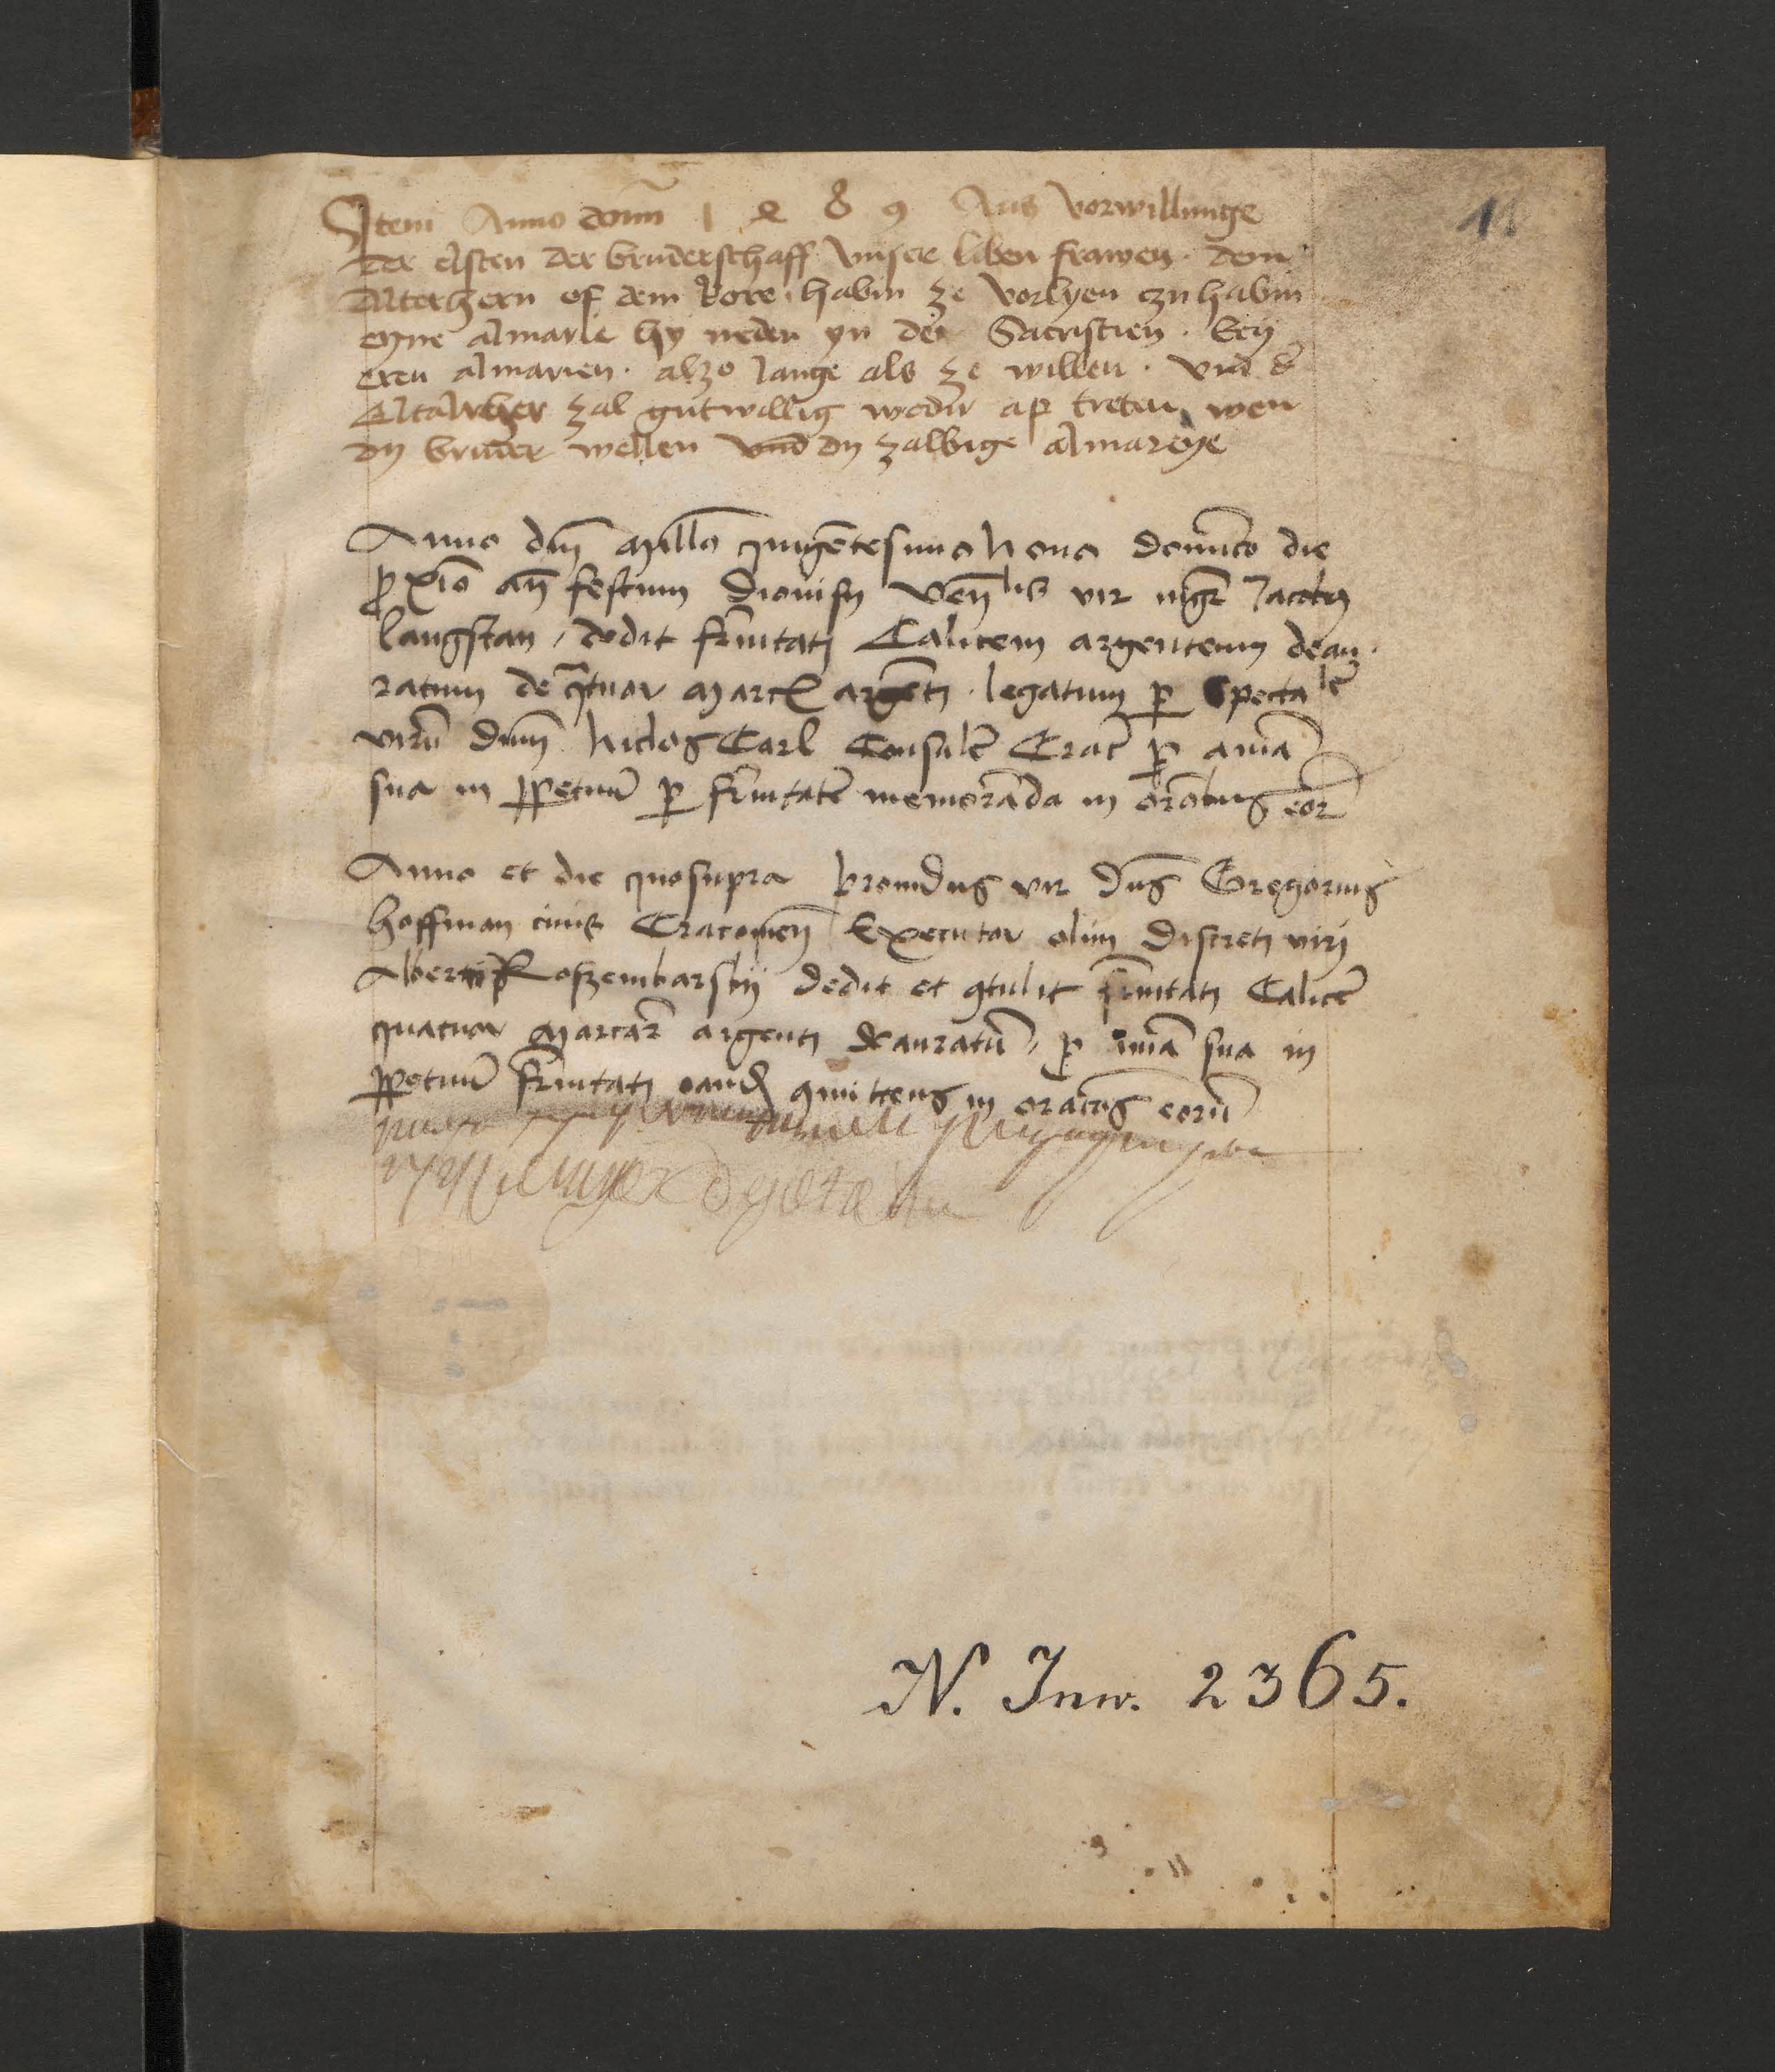 Item Anno domī 1 4 8 9 Aus vorwillunge
der elsten der bruderschaff vnser liben frawen · dem
Alterhern of dem kore · habin ze vorlyen czu habin
eyne almarie hy neden yn der Sacristien · bey
eren almarien · alzo lange als ze willen · vnd d̄
Altarher zal gutwillig wedir ap treten wen
dy bruder wellen vnd dy zalbige almareye
Anno dnī Millo quīgētesimo Nono domīco die
proxīo an̄ festum Dionisij ven̄lis vir mgr̄ Jacobus
langstan / dedit fr̄nitati Calicem argenteum deau·
ratum de q̄tuor Marcis argēti · legatum per Spectalē
virū dnm̄ Niclos Carl Consulē Crac̄ p aīa
sua in ppetuū p fr̄nitatē memorāda in orōibus eor̄
Anno et die quo supra provid9 vir Dn̄s Gregorius
hoffman civis Cracovien̄ Executor olim Discreti viri
Alberti Roszembarskij dedit et 9tulit fr̄nitati Calicē
quatuor Marcar̄ argenti deauratū / p aīma sua in
ppetuū fr̄nitati eand̄ 9mittens in oraci͞os eorū
N. Inw. 2365.